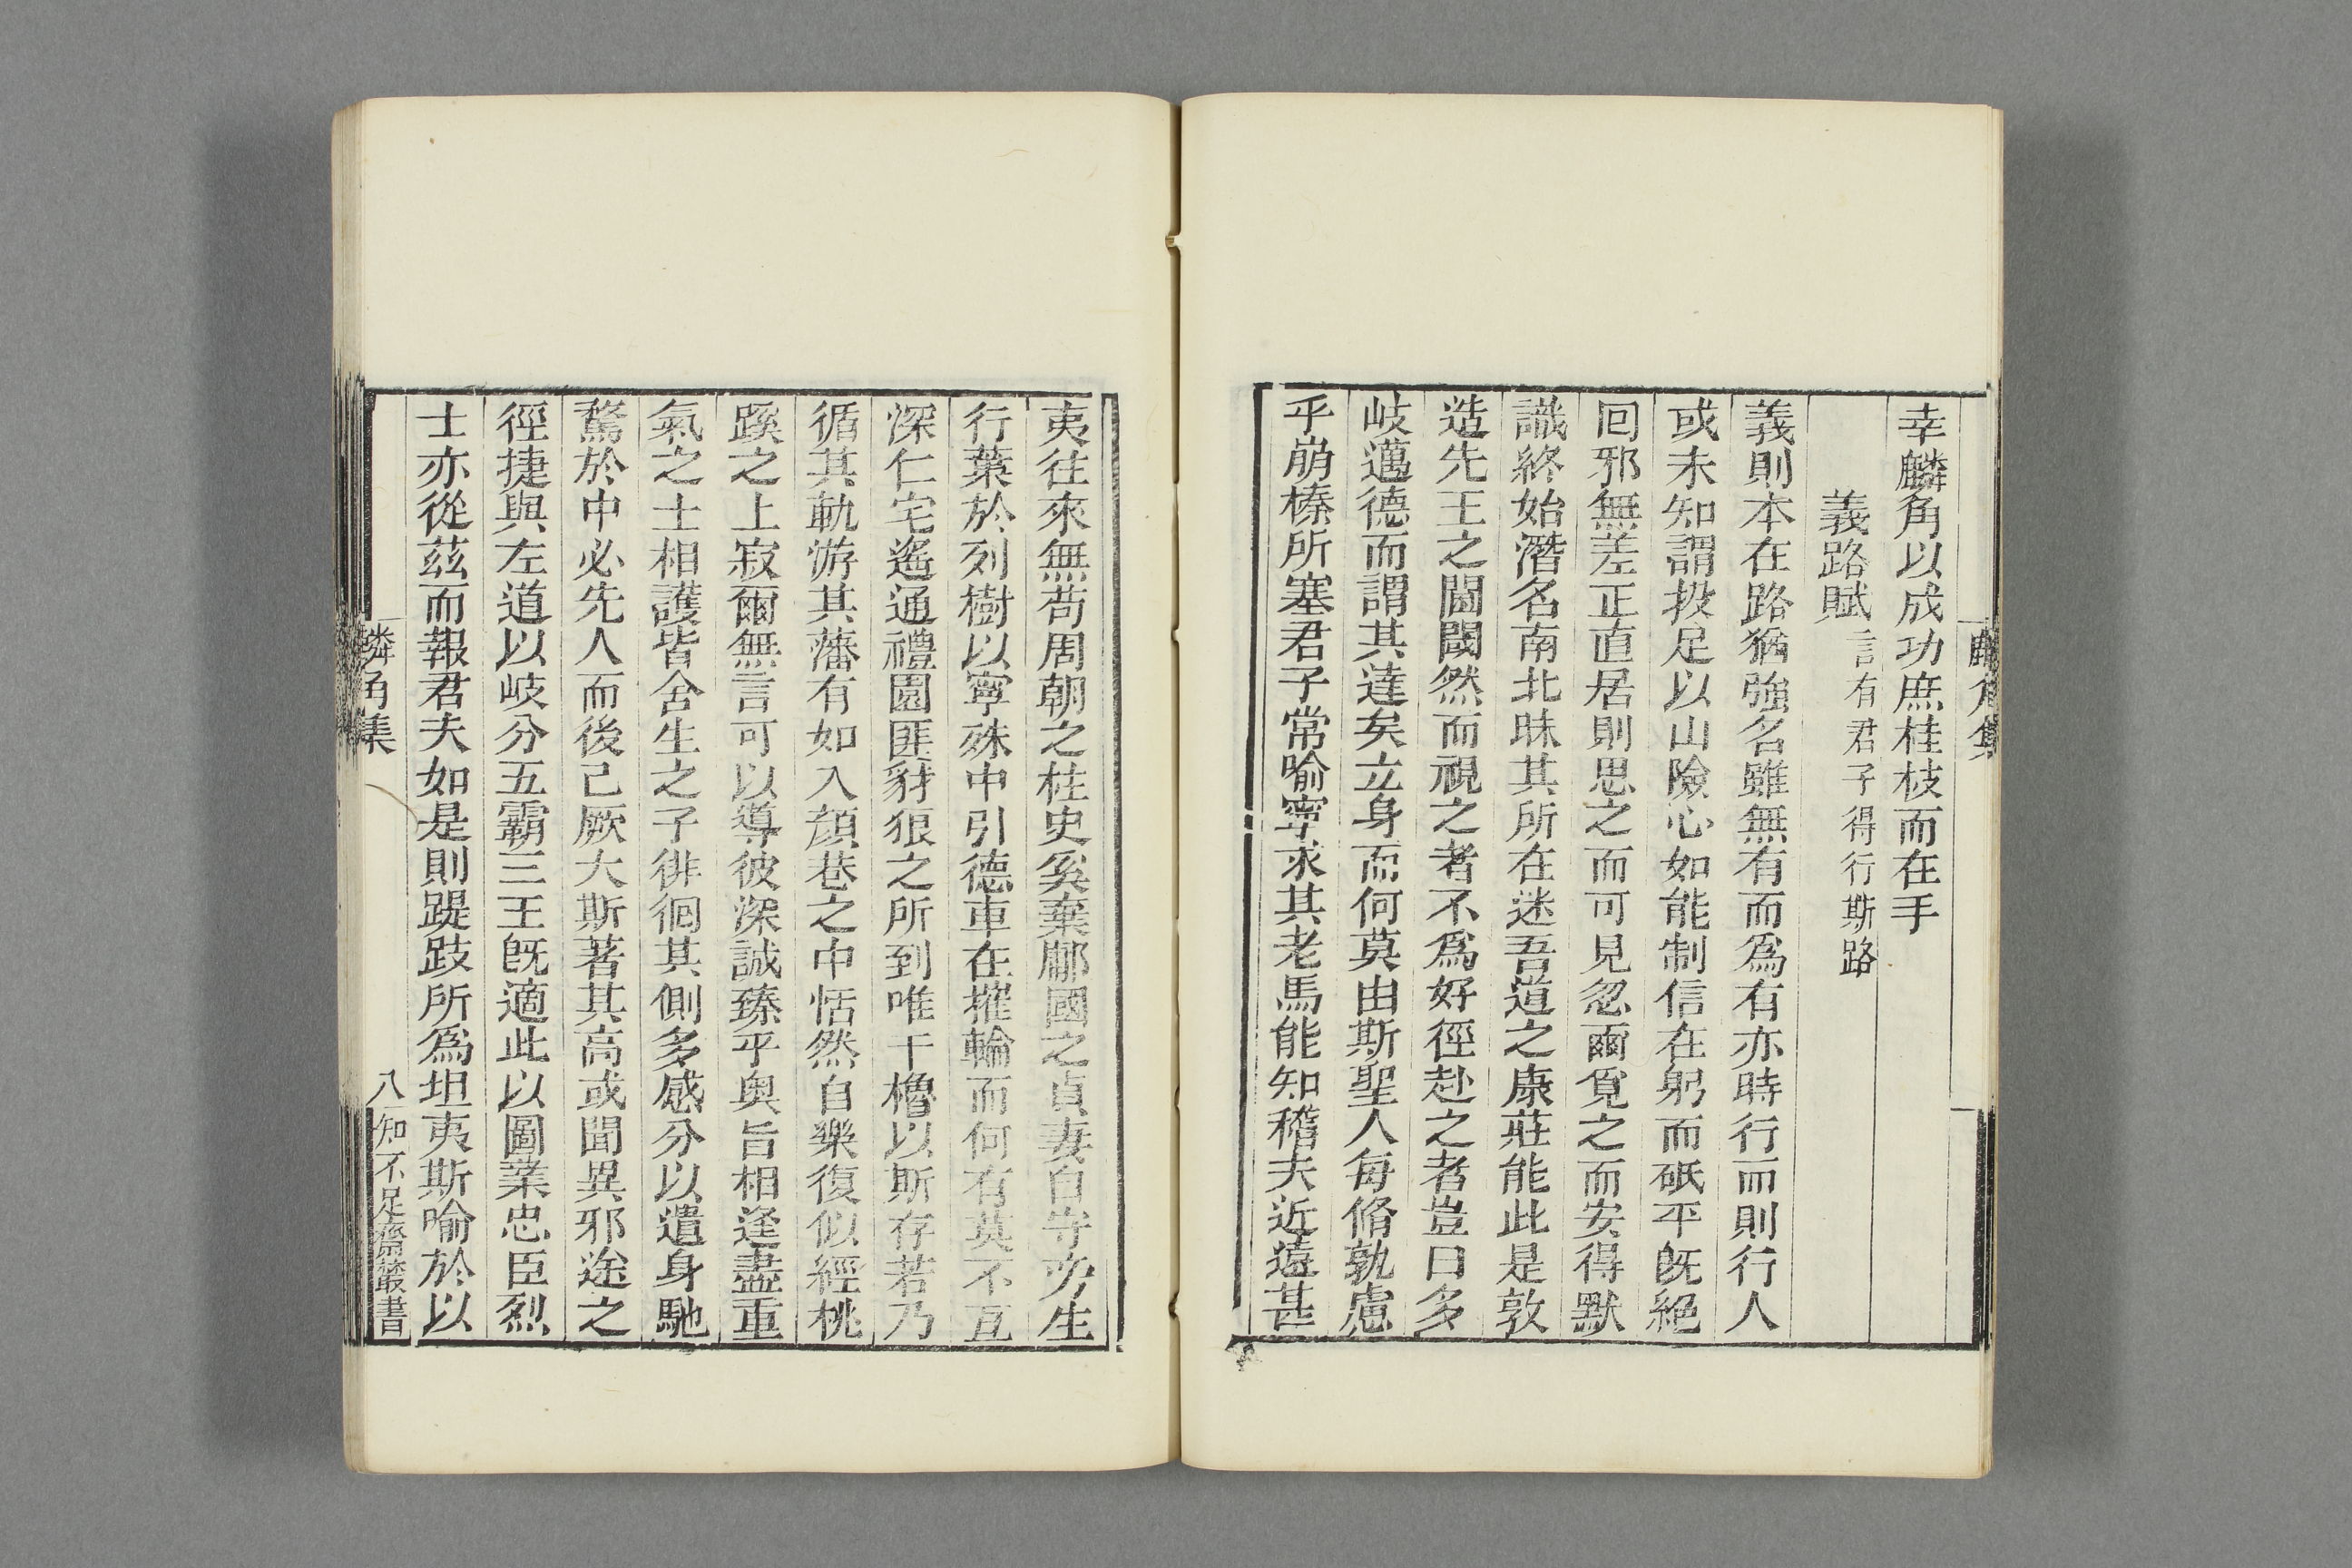 麟角集
幸麟角以成功庶桂枝而在手
義路賦言有君子得行斯路
義則本在路猶強名雖無有而爲有亦時行而則行人
或未知謂投足以山險心如能制信在躬而砥平旣絕
回邪無差正直居則思之而可見忽爾覓之而安得默
識終始潛名南北昧其所在迷吾道之康莊能此是敦
造先王之閫閾然而視之者不爲好徑赴之者豈曰多
岐邁德而謂其達矣立身而何莫由斯聖人每脩孰慮
乎崩榛所塞君子常喻寧求其老馬能知稽夫近遠甚
夷往來無苟周朝之柱史奚棄鄘國之貞妻自守旁生
行葉於列樹以寧殊中引德車在摧輪而何有莫不亙
深仁宅遙通禮園匪豺狼之所到唯干櫓以斯存若乃
循其軌游其藩有如入顏巷之中恬然自樂復似經桃
蹊之上寂爾無言可以導彼深誠臻乎奧旨相逢盡重
氣之士相護皆舍生之子徘徊其側多感分以遺身馳
騖於中必先人而後己厥大斯著其高或聞異邪途之
徑捷與左道以岐分五霸三王旣適此以圖業忠臣烈
士亦從茲而報君夫如是則踶跂所爲坦夷斯喻於以
麟角集 八 知不足齋叢書